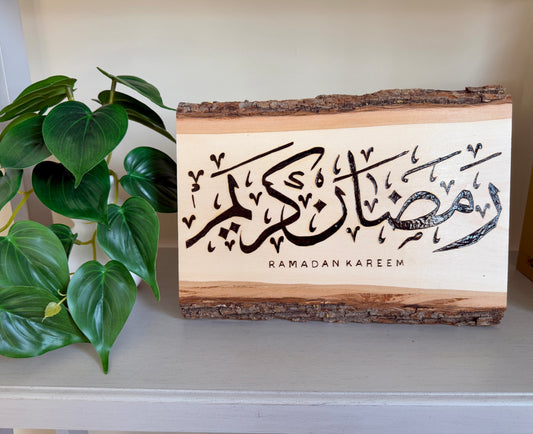 رمضان كريم
RAMADAN KAREEM